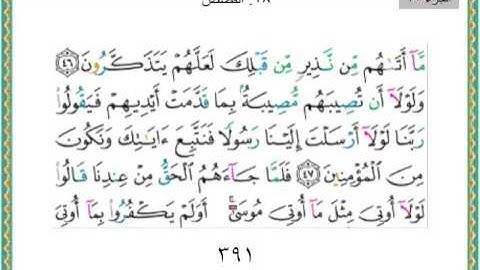 ٢٨. القصص
مَّآ أَتَىٰهُم مِّن نَّذِيرٍ مِّن قَبْلِكَ لَعَلَّهُمْ يَتَذَكَّرُونَ ٤٦
وَلَوْلَآ أَن تُصِيبَهُم مُّصِيبَةٌۢ بِمَا قَدَّمَتْ أَيْدِيهِمْ فَيَقُولُوا۟
رَبَّنَا لَوْلَآ أَرْسَلْتَ إِلَيْنَا رَسُولًا فَنَتَّبِعَ ءَايَٰتِكَ وَنَكُونَ
مِنَ الْمُؤْمِنِينَ ٤٧ فَلَمَّا جَآءَهُمُ الْحَقُّ مِنْ عِندِنَا قَالُوا۟
لَوْلَآ أُوتِىَ مِثْلَ مَآ أُوتِىَ مُوسَىٰٓ ۚ أَوَلَمْ يَكْفُرُوا۟ بِمَآ أُوتِىَ
٣٩١